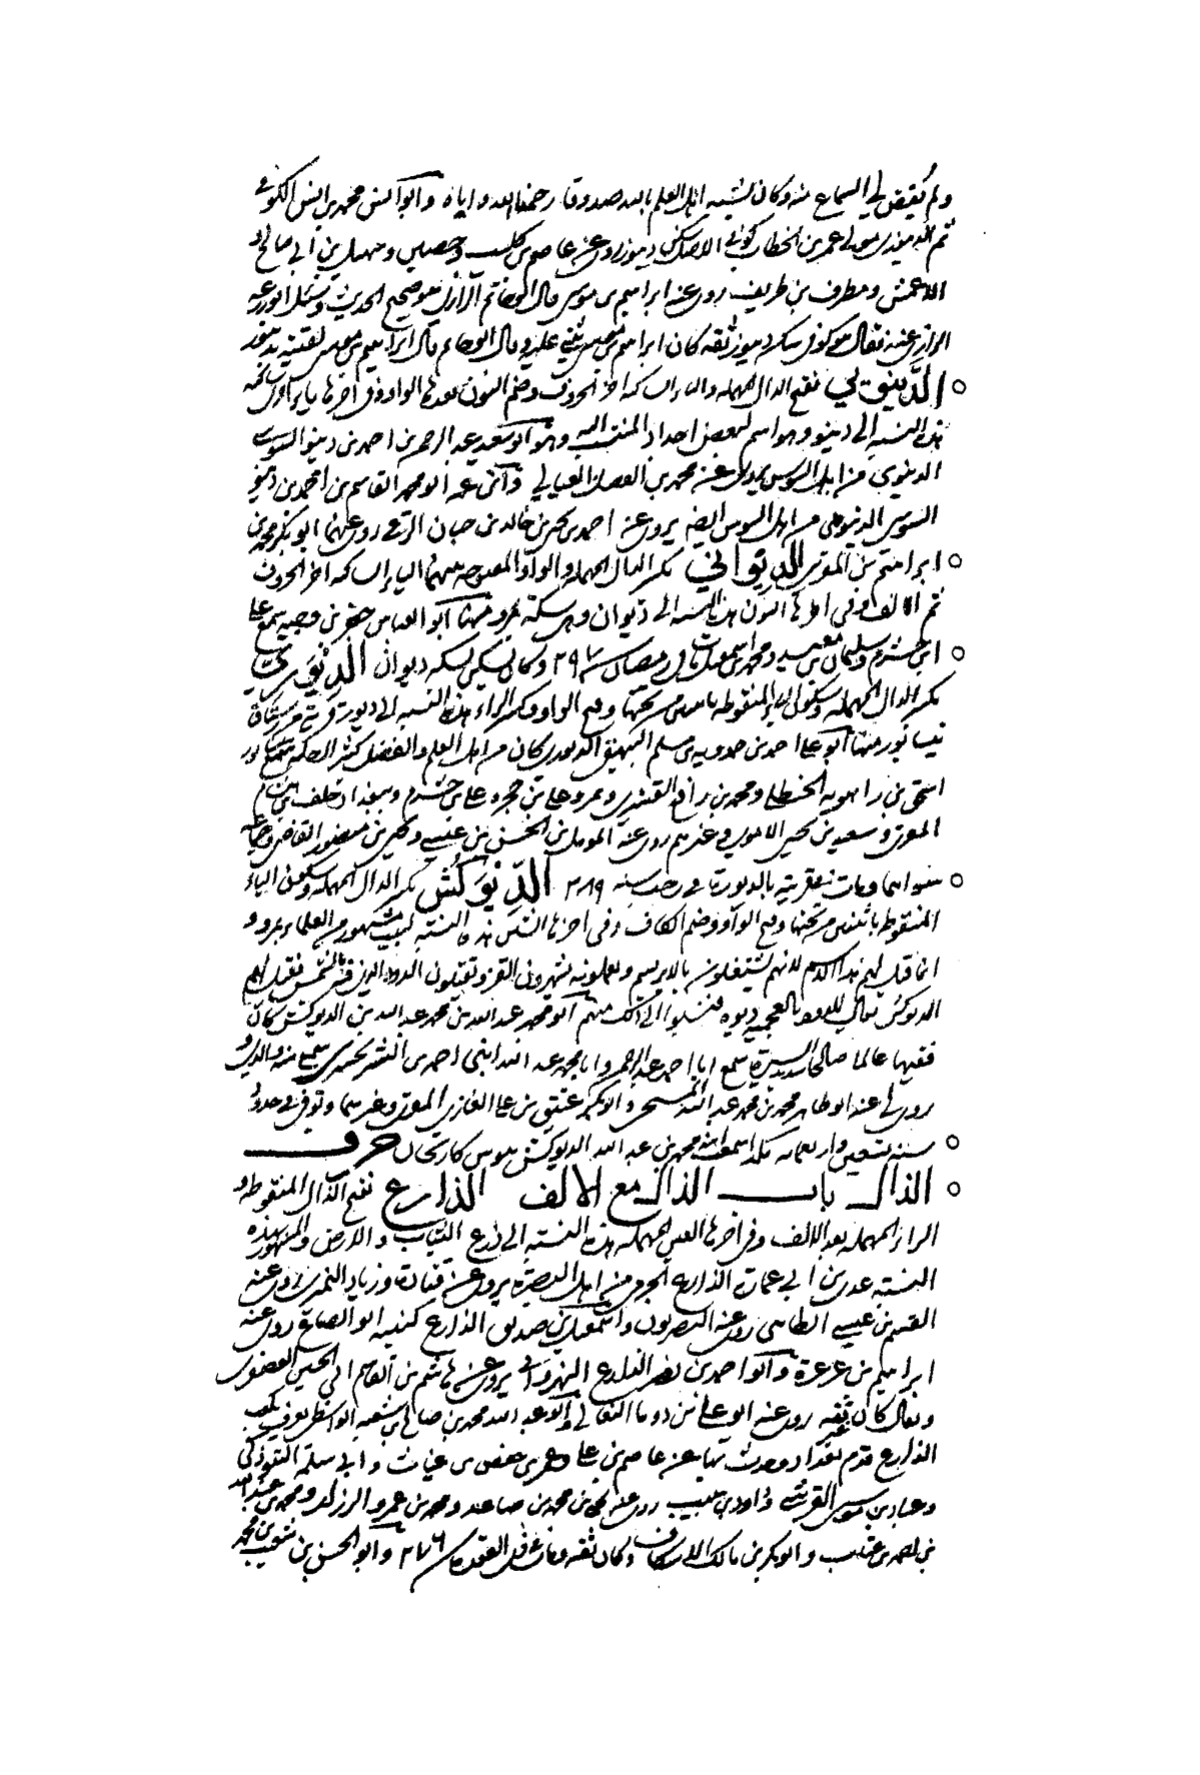 ولم يتفق لي السماع منه وكان يشبه اهل العلم بالله صدوقا رحمنا الله واياه وابو انس محمد بن انس الكوفي
ثم الدينوري مولى عمر بن الخطاب كوفي الاصل سكن دينور روى عن عاصم بن كليب وحصين وسهيل بن ابي صالح و
الاعمش ومطرف بن طريف روى عنه ابراهيم بن موسى قال ابو حاتم الرازي هو صحيح الحديث وسئل ابو زرعة
الرازي عنه فقال هو كوفي سكن دينور ثقة كان ابراهيم بن موسى يثني عليه وقال ابو حاتم قال ابراهيم بن موسى لقيته بدينور
الدينوي بفتح الدال المهملة والياء الساكنة اخر الحروف وضم النون بعدها الواو وفي اخرها ياء
هذه النسبة الى دينو وهو اسم لبعض اجداد المنتسب اليه وهو ابو سعيد عبد الرحمن بن احمد بن دينو السوسي
الدينوي من اهل السوس يروي عن محمد بن الفضل العباي وابن عمه ابو محمد القاسم بن احمد بن دينو
السوسي الدينوي من اهل السوس ايضا يروي عن احمد بن يحيى بن خالد بن حبان الرقي روى عنهما ابو بكر محمد بن
ابراهيم بن المقرئ الديواني بكسر الدال المهملة والواو المفتوحة بينهما الياء الساكنة اخر الحروف
ثم الالف وفي اخرها النون هذه النسبة الى ديوان وهي سكة بمرو منها ابو العباس جعفر بن وجيه سمع علي
ابن خشرم وسليمان بن معبد ومحمد بن اسمعيل مات في رمضان ٢٩٧ وكان يسكن سكة ديوان الديوري
بكسر الدال المهملة وسكون الياء المنقوطة باثنتين من تحتها وفتح الواو وكسر الراء هذه النسبة الى ديورة قرية من رستاق
نيسابور منها ابو علي احمد بن حمدويه بن مسلم البيهقي الديوري كان من اهل العلم والفضل كثير الرحلة سمع بنيسابور
اسحق بن راهويه الحنظلي ومحمد بن رافع القشيري وبمرو علي بن حجر وعلي بن خشرم وببغداد خلف بن هشام
المقرئ وسعيد بن يحيى الاموي وغيرهم روى عنه المومل بن الحسن بن عيسى ويحيى بن منصور القاضي وجماعة
سواهما ومات بقريته بالديورة في رجب سنه ٢٨٩ الديوكش بكسر الدال المهملة وسكون الياء
المنقوطة باثنتين من تحتها وفتح الواو وضم الكاف وفي اخرها الشين هذه النسبة لبيت مشهور من العلماء بمرو و
انما قيل لهم هذا الاسم لانهم يشتغلون بالابريسم ويعملونه يشترون القز ويقتلون الدود الذي فيه بالشمس فقيل لهم
الديوكش يقال للدود بالعجمية ديوه فنسبوا الى ذلك منهم ابو محمد عبد الله بن محمد عبد الله بن الديوكش كان
فقيها عالما صالحا سديد السيرة سمع ابا احمد عبد الرحمن وابا محمد عبد الله ابني احمد سمع منه والدي و
روى لي عنه ابو طاهر محمد بن محمد بن عبد الله السنجي وابو بكر عتيق بن علي الغازي المقرئ وغيرهما وتوفي في حدود
سنة تسعين واربعمائه محمد بن عبد الله الديوكش حرف
الذال باب الذال مع الالف الذارع بفتح الذال المنقوطة و
الراء المهملة بعد الالف وفي اخرها العين المهملة هذه النسبة الى ذرع الثياب والارض والمشهور بهذه
النسبة عدي بن ابي عمارة الذارع الجرمي من اهل البصرة يروي عن قتادة وزياد النميري روى عنه
القسم بن عيسى الطائي روى عنه البصريون واسمعيل بن صديق الذارع كنيته ابو الصباح روى عنه
ابراهيم بن عرعرة وابو احمد بن نصر الذارع النهرواني يروي عن هاشم بن القاسم ابي الحسين العصفري
وقال كان ثقة روى عنه ابو علي بن دوما النعالي وابو عبد الله محمد بن صالح بن شعبة الواسطي يعرف بكعب
الذارع قدم بغداد وحدث بها عن عاصم بن علي وعمر بن حفص بن غياث وابي سلمة التبوذكي
وعباد بن موسى القرشي وداود بن شبيب روى عنه يحيى بن محمد بن صاعد ومحمد بن عمرو الرزاز ومحمد بن عبد الله
بن احمد بن عتاب وابو بكر بن مالك الاسكافي وكان ثقة ومات في ذي القعدة ٢٧٦ وابو الحسن بن شعيب بن محمد